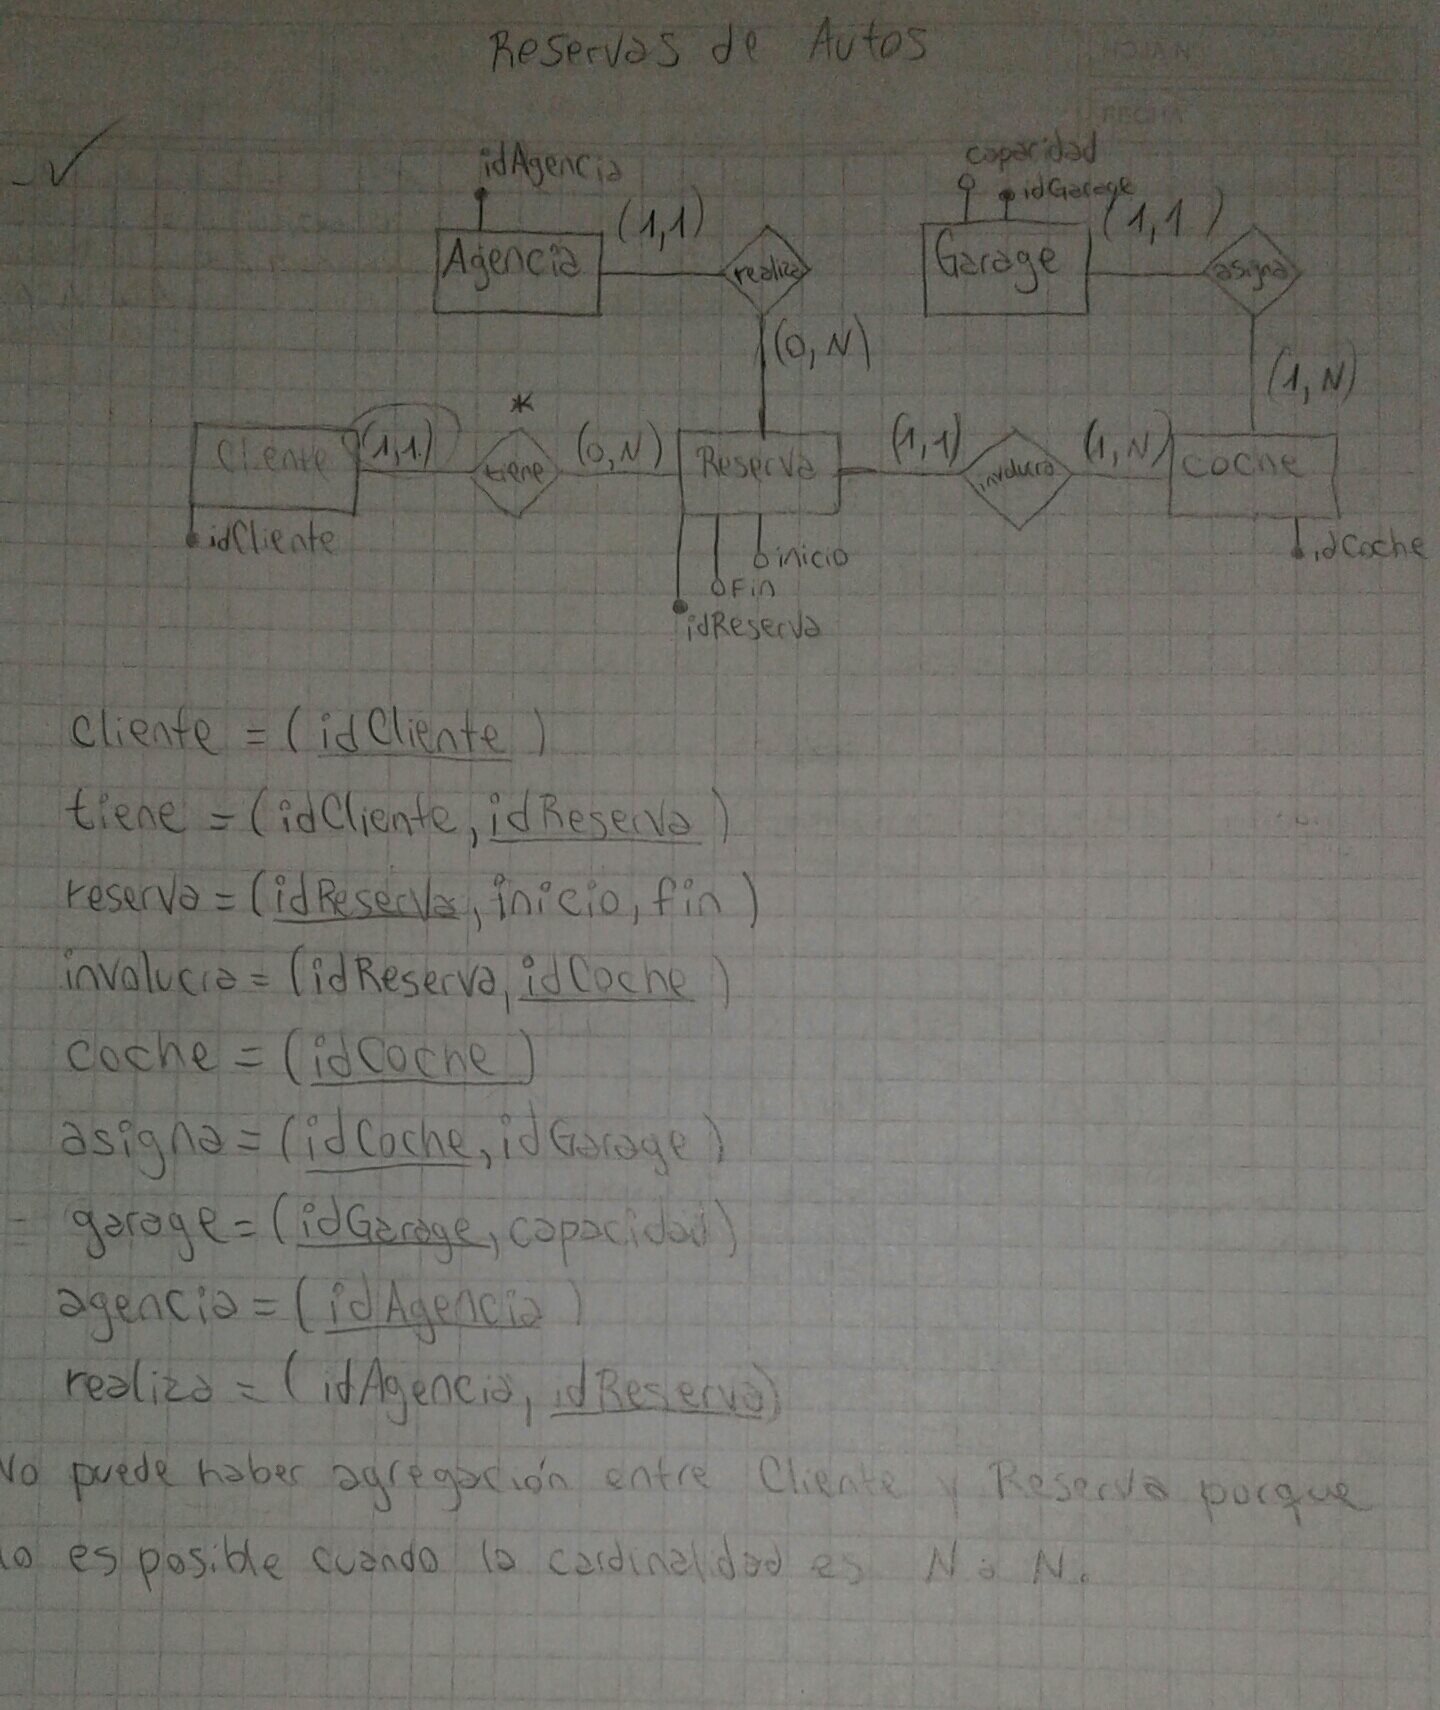 Reservas de Autos
FECHA
idAgencia
capacidad
idGarage
(1,1)
(1,1)
Agencia
realiza
Garage
asigna
(0,N)
(1,N)
*
Cliente
(1,1)
tiene
(0,N)
Reserva
(1,1)
involucra
(1,N)
coche
idCliente
inicio
Fin
idReserva
idCoche
cliente = (idCliente)
tiene = (idCliente, idReserva)
reserva = (idReserva, inicio, fin)
involucra = (idReserva, idCoche)
coche = (idCoche)
asigna = (idCoche, idGarage)
garage = (idGarage, capacidad)
agencia = (idAgencia)
realiza = (idAgencia, idReserva)
No puede haber agregación entre Cliente y Reserva porque
es posible cuando la cardinalidad es N a N.